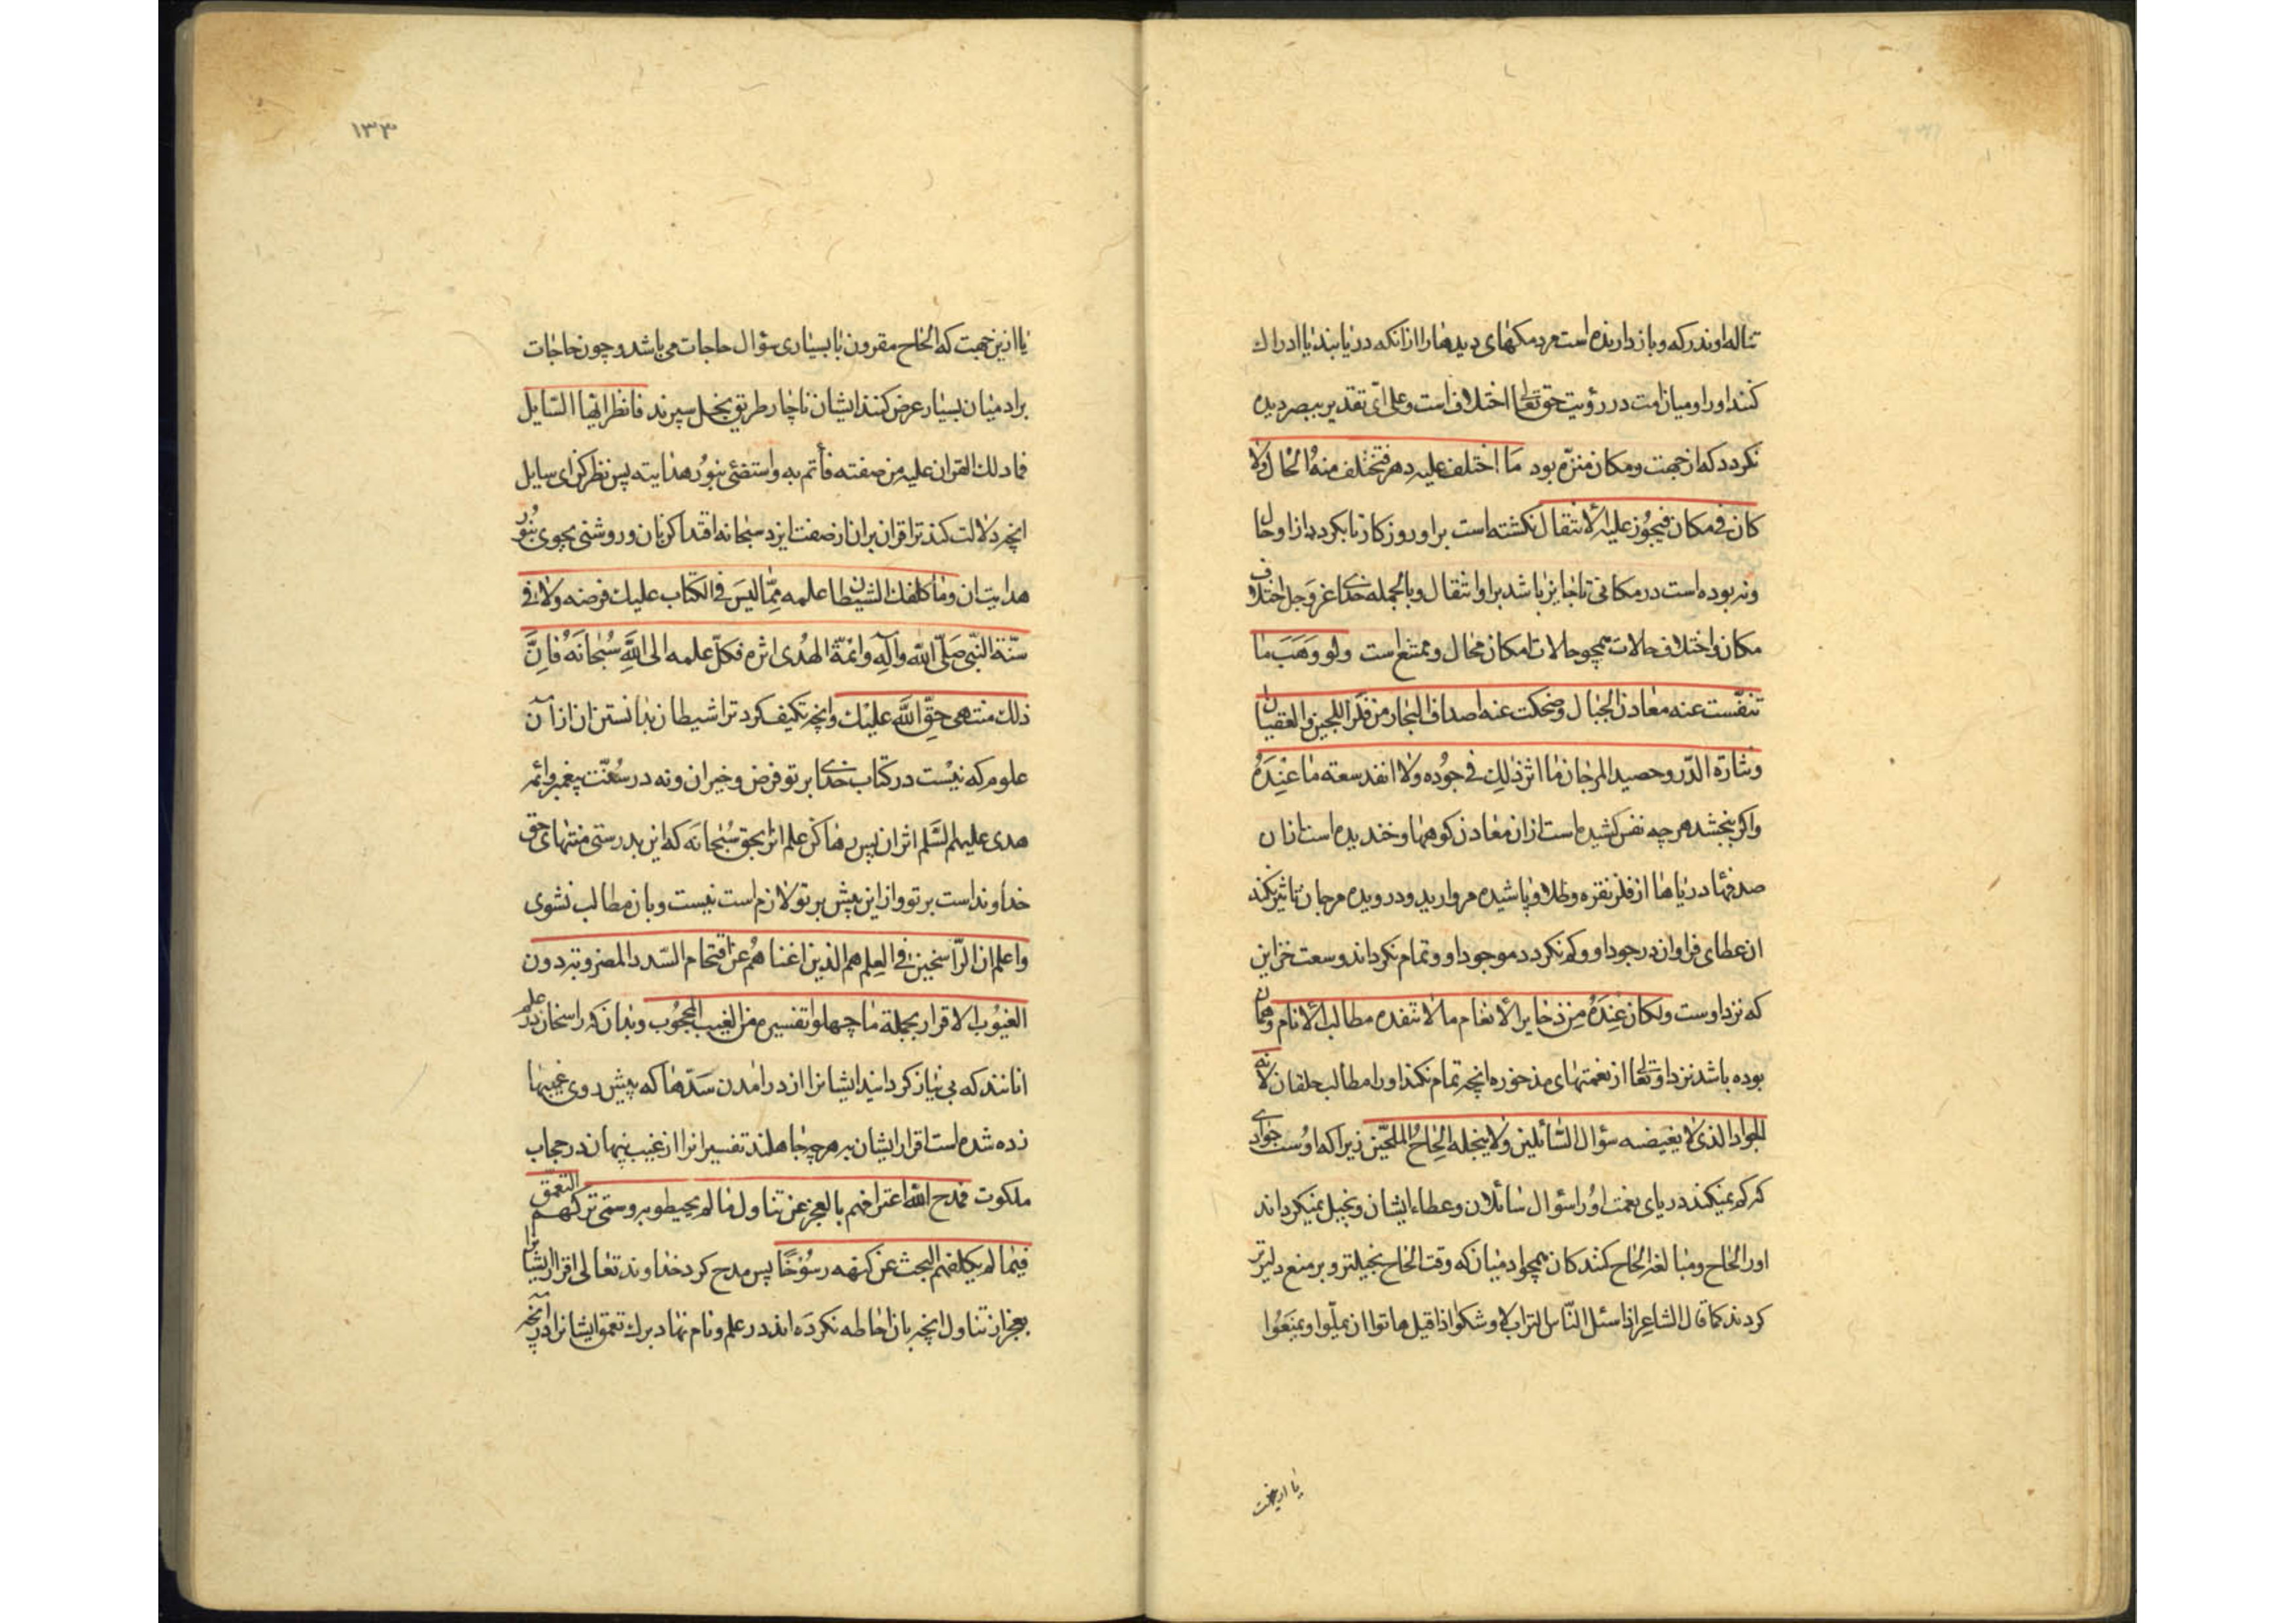 تناله او تدركه و باز دارنده است مردمکهای دیدها را از آنکه دریابند یا ادراك
کنند او را و میان امت در رؤیت حق تعالی اختلاف است و علی ای تقدیر ببصر دیده
نکردد که از جهت و مکان منزه بود ما اختلف علیه دهر فتختلف منه الحال ولا
کان فی مکان فیجوز علیه الانتقال نکشته است بر او روزکار تا بکردد از او حال
و نه بوده است در مکانی تا جایز باشد بر او انتقال و بالجمله خدای عز و جل اختلاف
مکان و اختلاف حالات همچو حالات امکان محال و ممتنع است ولو وهب ما
تنفست عنه معادن الجبال وضحکت عنه اصداف البحار من فلز اللجین والعقیان
ونثارة الدر وحصید المرجان ما اثر ذلك فی جوده ولا انفد سعة ما عنده
واکر ببخشد هر چه نفس کشیده است از ان معادن کوهها و خندیده است از ان
صدفهای دریاها از فلز نقره وطلا و پاشیده مروارید و درویده مرجان تاثیر نکند
ان عطای فراوان در جود او و کم نکردد موجود او و تمام نکرداند وسعت خزاین
که نزد اوست ولکان عنده من ذخایر الانعام ما لا تنفده مطالب الانام وهمان
بوده باشد نزد او تعالی از نعمتهای مذخوره انچه تمام نکند او را مطالب خلقان لانه
الجواد الذی لا یغیضه سؤال السائلین ولا یبخله الحاح الملحین زیرا که اوست جوادی
که کم نمیکند دریای نعمت او را سؤال سائلان و عطاء ایشان و بخیل نمیکرداند
او را الحاح و مبالغه الحاح کنندکان همچو ادمیان که وقت الحاح بخیلتر و بر منع دلیرتر
کردند کما قال الشاعر اذا سئل الناس التراب لاوشکوا اذا قیل هاتوا ان یملوا ویمنعوا
یا ازینجهت
۱۳۳
یا ازین جهت که الحاح مقرون با بسیاری سؤال حاجات می باشد و چون حاجات
بر ادمیان بسیار عرض کنند ایشان ناچار طریق بخل سپرند فانظر ایها السایل
فما دلك القران علیه من صفته فأتم به واستضئ بنور هدایته پس نظر کن ای سایل
انچه دلالت کند ترا قران بر ان از صفت ایزد سبحانه اقتدا کن بان و روشنی بجوی بنور
هدایت ان وما کلفك الشیطان علمه مما لیس فی الکتاب علیك فرضه ولا فی
سنة النبی صلی الله وآله وائمة الهدی اثره فکل علمه الی الله سبحانه فان
ذلك منتهی حق الله علیك وانچه تکلیف کرد ترا شیطان بدانستن ان از آن
علوم که نیست در کتاب خدای بر تو فرض و خیر ان ونه در سنت پیغمبر وائمه
هدی علیهم السلم اثر ان پس رها کن علم انرا بحق سبحانه که این بدرستی منتهای حق
خداوند است بر تو و از این بیش بر تو لازم است نیست و بان مطالب نشوی
واعلم ان الراسخین فی العلم هم الذین اغناهم عن اقتحام السدد المضروبة دون
الغیوب الاقرار بجملة ما جهلوا تفسیره من الغیب المحجوب وبدان که راسخان در علم
انانند که بی نیاز کردانید ایشانرا از درامدن سدها که پیش روی غیبها
زده شده است اقرار ایشان بهر چه جاهلند تفسیر انرا از غیب پنهان در حجاب
ملکوت فمدح الله اعترافهم بالعجز عن تناول ما لم یحیطوا به وسمی ترکهم التعمق
فیما لم یکلفهم البحث عن کنهه رسوخا پس مدح کرد خداوند تعالی اقرار ایشانرا
بعجز از تناول انچه بان احاطه نکرده اند در علم و نام نهاد برك تعمق ایشانرا در انچه